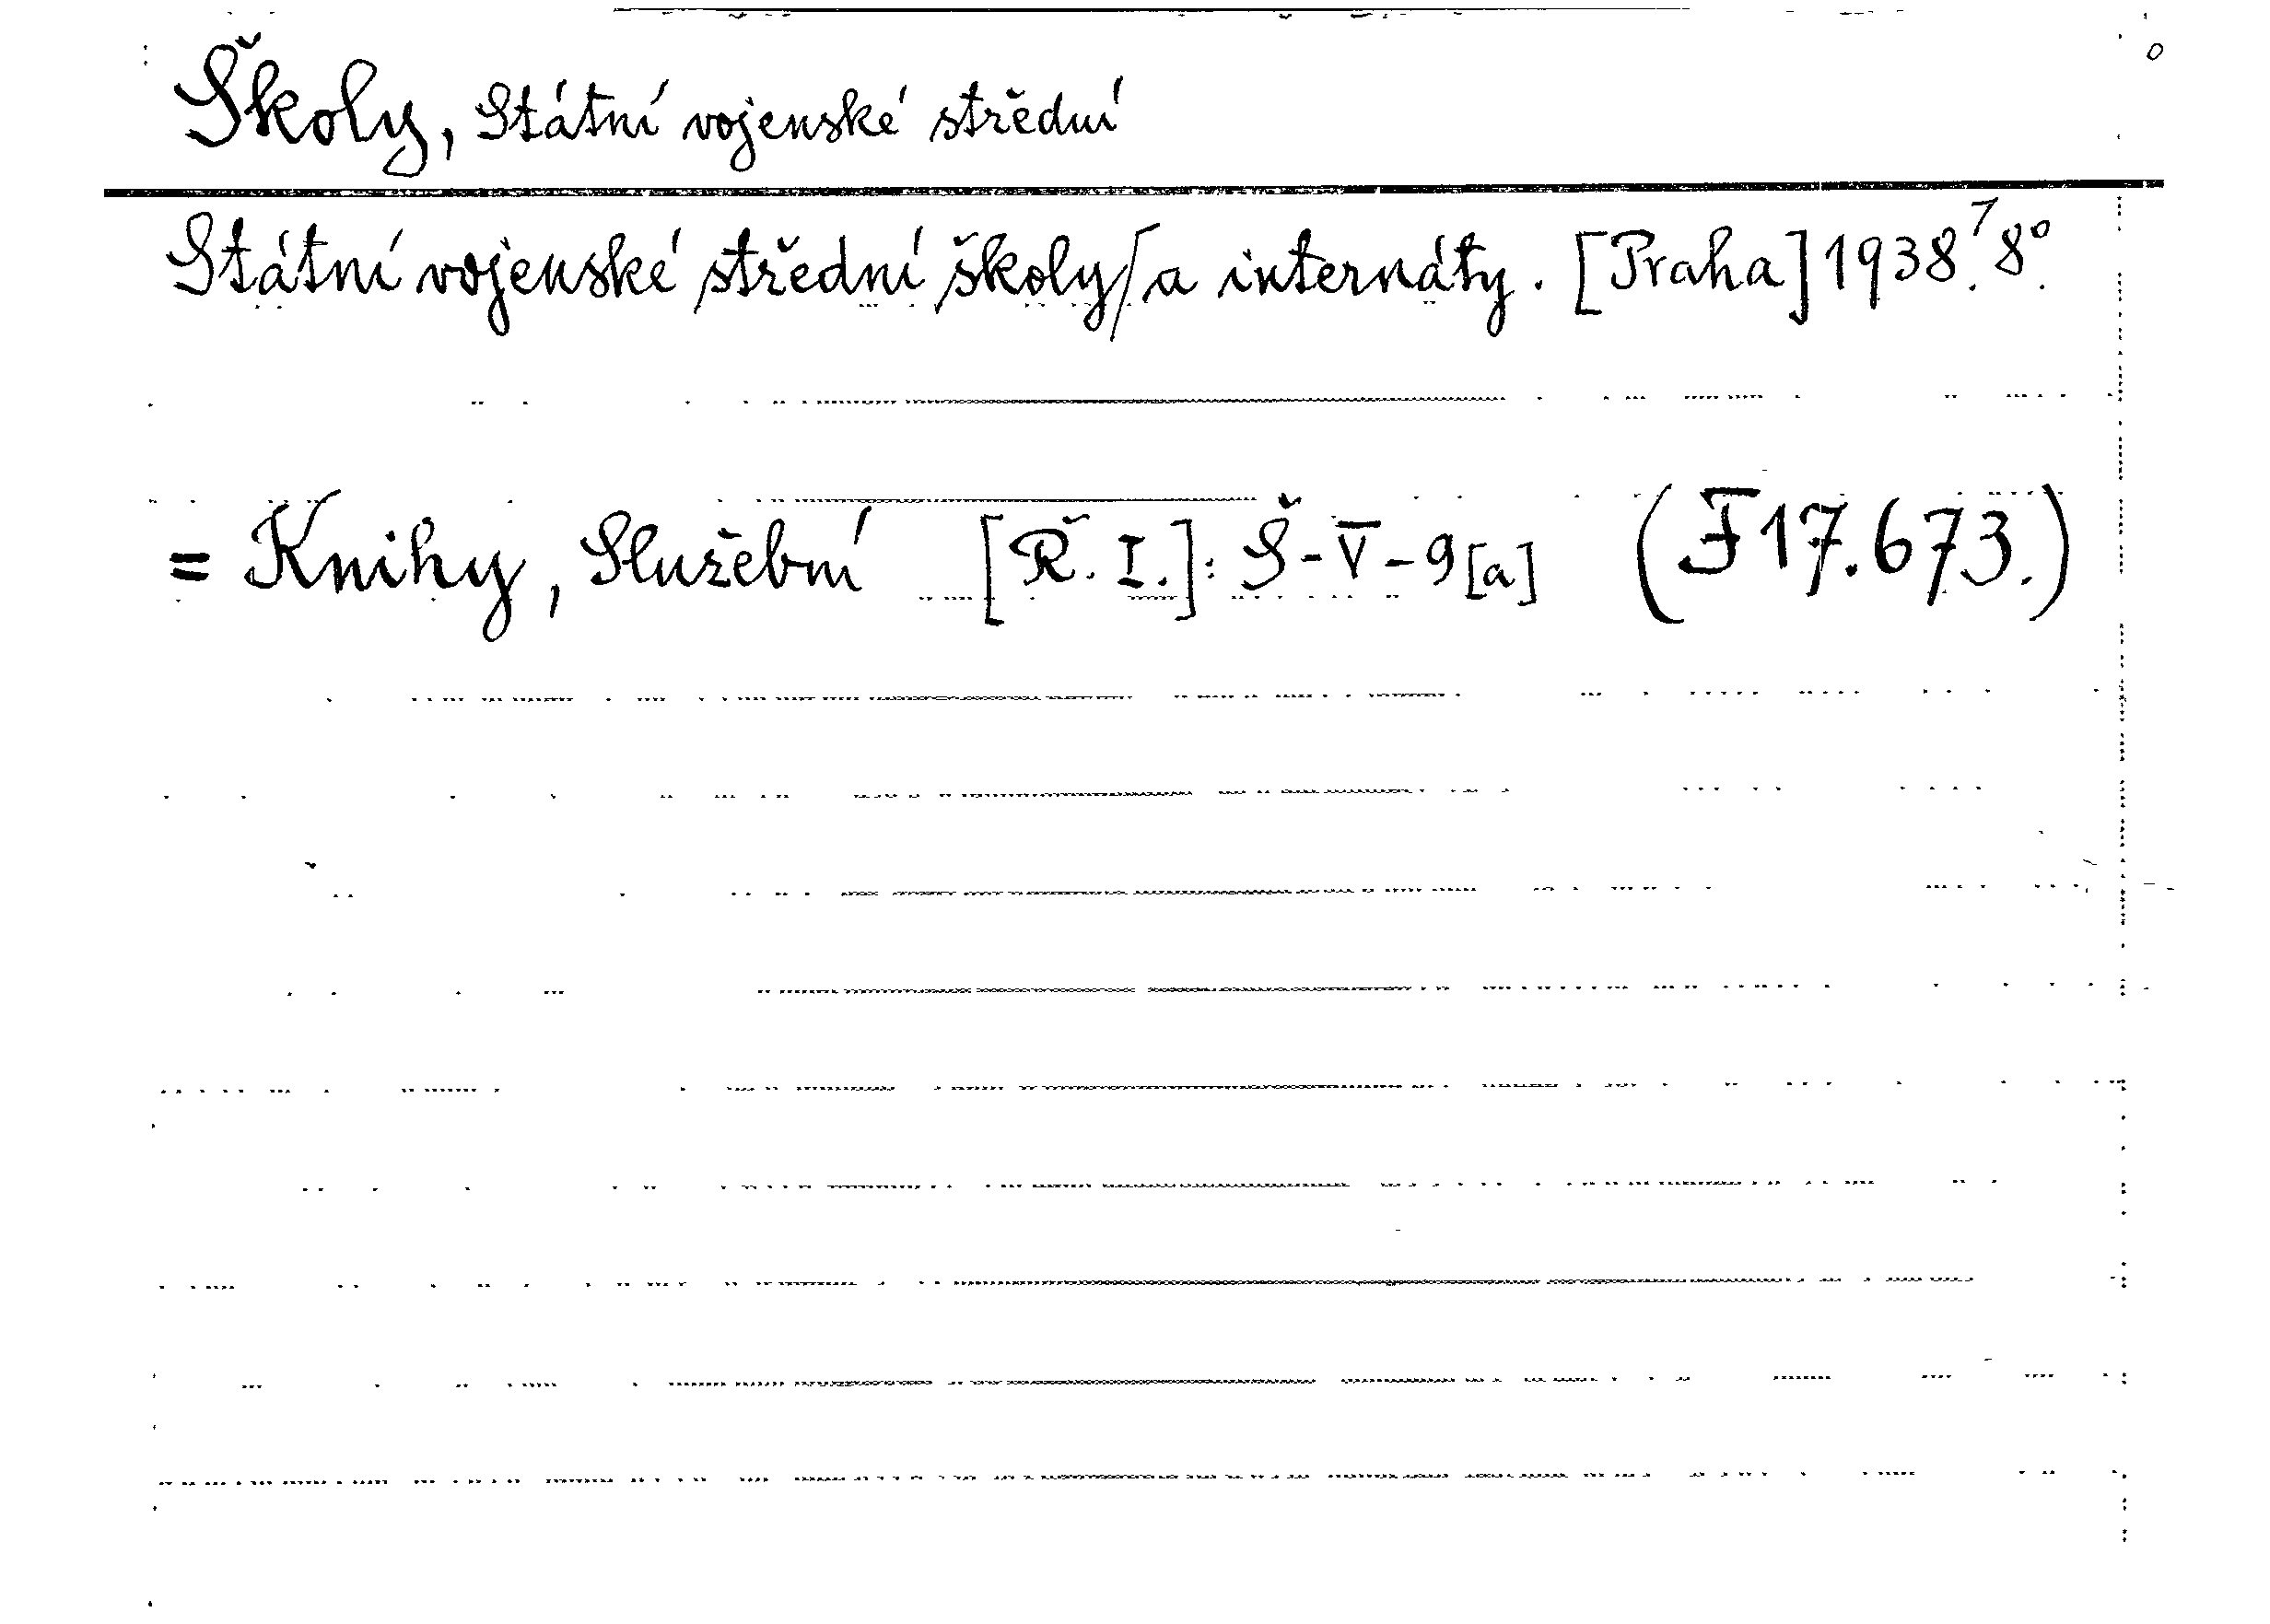 Školy, Státní vojenské střední
Státní vojenské střední školy/a internáty. [Praha] 1938. 8°.
= Knihy, Služební [Ř. I.]: Š-V-9[a] (F 17.673.)